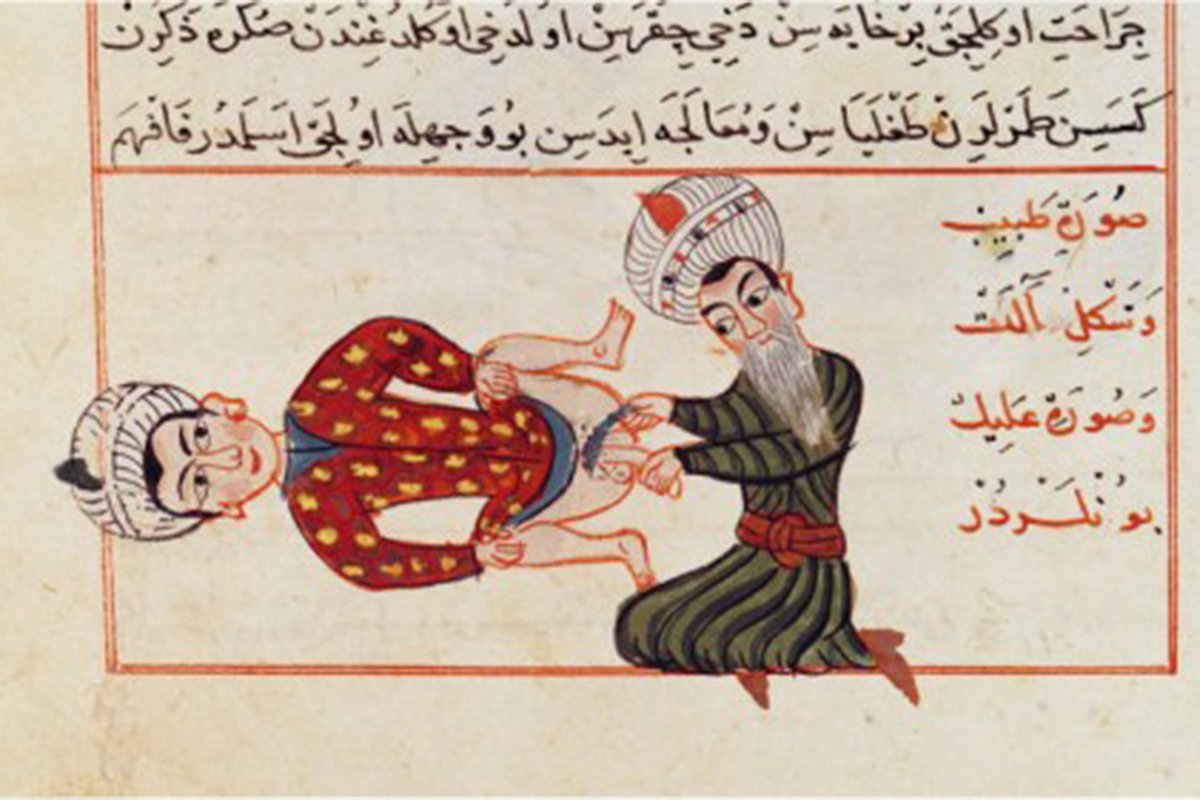 جِرَاحَتِ اوكِلِجَقْ بِرْ خَايَه سِنْ دَخِي جِقَرَسِنْ اولدخِي اوكلدغِنْدَنْ صُكْرَه ذَكَرِنْ
كَسَسِنْ طَمَرْلَرِنْ طَغْلَيَاسِنْ وَمُعَالَجَه ايدَسِن بُو وَجهِلَه اوُلِجَقْ اسلمدُر فَافْهَمَ
صُورَةِ طَبِيبْ
وَشَكِلِ آلَتْ
وَصُورَةِ عَلِيلْ
بُونْلَرْدُرْ